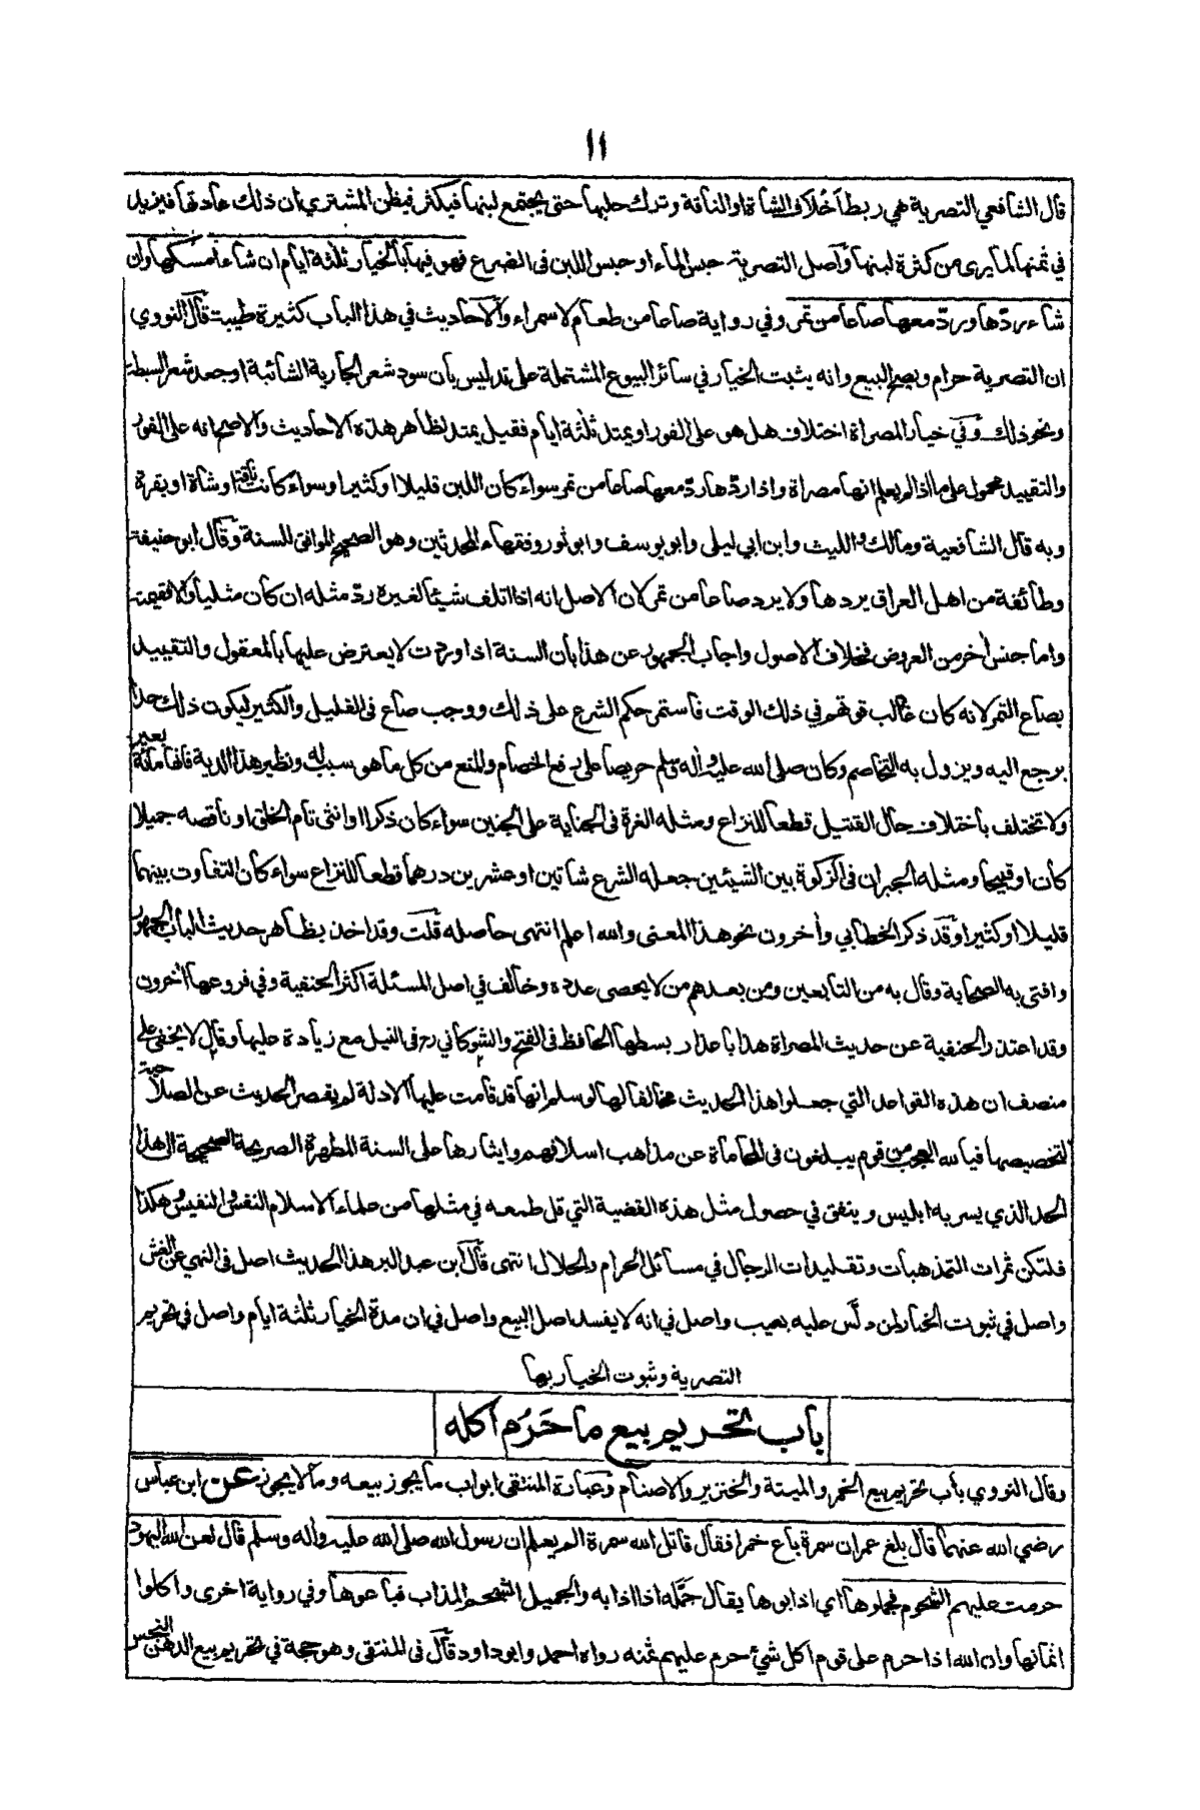 ١١
قال الشافعي التصرية هي ربط أخلاف الشاة او الناقة وترك حلبها حتى يجتمع لبنها فيكثر فيظن المشتري ان ذلك عادتها فيزيد
في ثمنها لما يرى من كثرة لبنها وأصل التصرية حبس الماء او حبس اللبن فى الضرع فهو فيها بالخيار ثلثة ايام ان شاء امسكها وان
شاء ردّها وردّ معها صاعا من تمر وفي رواية صاعا من طعام لا سمراء والاحاديث في هذا الباب كثيرة طيبة قال النووي
ان التصرية حرام ويصح البيع وانه يثبت الخيار في سائر البيوع المشتملة على تدليس بان سود شعر الجارية الشائبة او جعد شعر السبطة
ونحو ذلك وفي خيار المصراة اختلاف هل هو على الفور او يمتد ثلثة ايام فقيل يمتد لظاهر هذه الاحاديث والاصح انه على الفور
والتقييد محمول على ما اذا لم يعلم انها مصراة واذا ردّها ردّ معها صاعا من تمر سواء كان اللبن قليلا او كثيرا وسواء كانت ناقة او شاة او بقرة
وبه قال الشافعية ومالك والليث وابن ابي ليلى وابو يوسف وابو ثور وفقهاء المحدثين وهو الصحيح الموافق للسنة وقال ابو حنيفة
وطائفة من اهل العراق يردها ولا يرد صاعا من تمر لان الاصل انه اذا اتلف شيئا لغيره ردّ مثله ان كان مثليا والا فقيمته
واما جنس أخر من العروض فخلاف الاصول واجاب الجمهور عن هذا بان السنة اذا وردت لا يعترض عليها بالمعقول والتقييد
بصاع التمر لانه كان غالب قوتهم في ذلك الوقت فاستمر حكم الشرع على ذلك ووجب صاع فى القليل والكثير ليكون ذلك حدا
يرجع اليه ويزول به التخاصم وكان صلى الله عليه وأله وسلم حريصا على رفع الخصام والمنع من كل ما هو سبب له ونظير هذا الدية فانها مائة بعير
ولا تختلف باختلاف حال القتيل قطعا للنزاع ومثله الغرة فى الجناية على الجنين سواء كان ذكرا او انثى تام الخلق او ناقصه جميلا
كان او قبيحا ومثله الجبران فى الزكوة بين الشيئين جعله الشرع شاتين او عشرين درهما قطعا للنزاع سواء كان التفاوت بينهما
قليلا او كثيرا وقد ذكر الخطابي وأخرون نحو هذا المعنى والله اعلم انتهى حاصله قلت وقد اخذ بظاهر حديث الباب الجمهور
وافتى به الصحابة وقال به من التابعين ومن بعدهم من لا يحصى عدده وخالف في اصل المسئلة اكثر الحنفية وفي فروعها أخرون
وقد اعتذر الحنفية عن حديث المصراة هذا باعذار بسطها الحافظ فى الفتح والشوكاني رح فى النيل مع زيادة عليها وقال لا يخفى على
منصف ان هذه القواعد التي جعلوا هذا الحديث مخالفا لها لو سلم انها قد قامت عليها الادلة لم يقصر الحديث عن الصلاحية
لتخصيصها فيا لله العجب من قوم يبلغون فى المحاماة عن مذاهب اسلافهم وايثارها على السنة المطهرة الصريحة الصحيحة الى هذا
الحد الذي يسر به ابليس وينفق في حصول مثل هذه القضية التي قل طمعه في مثلها من علماء الاسلام النفس والنفيس وهكذا
فلتكن ثمرات التمذهبات وتقليدات الرجال في مسائل الحرام والحلال انتهى قال ابن عبد البر هذا الحديث اصل فى النهي عن الغش
واصل في ثبوت الخيار لمن دلّس عليه بعيب واصل في انه لا يفسد اصل البيع واصل في ان مدة الخيار ثلثة ايام واصل في تحريم
التصرية وثبوت الخيار بها
باب تحريم بيع ما حَرُم اكله
وقال النووي باب تحريم بيع الخمر والميتة والخنزير والاصنام وعبارة المنتقى ابواب ما يجوز بيعه وما لا يجوز عن ابن عباس
رضي الله عنهما قال بلغ عمر ان سمرة باع خمرا فقال قاتل الله سمرة الم يعلم ان رسول الله صلى الله عليه وأله وسلم قال لعن الله اليهود
حرمت عليهم الشحوم فجملوها اي اذابوها يقال جمّله اذا اذابه والجميل الشحم المذاب فباعوها وفي رواية اخرى واكلوا
اثمانها وان الله اذا حرم على قوم اكل شئ حرم عليهم ثمنه رواه احمد وابو داود قال فى المنتقى وهو حجة في تحريم بيع الدهن النجس